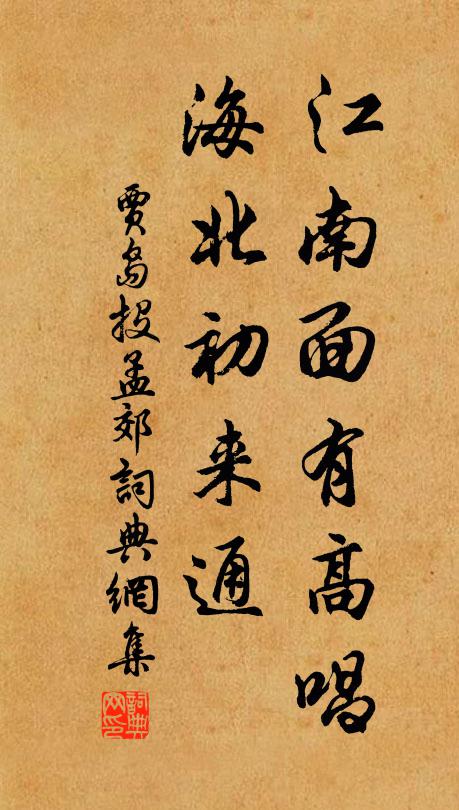 江南面有高唱
海北初来通
賈島投孟郊詞典網集
詞典
网印